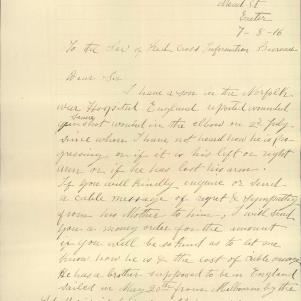 Mead St
Exeter
7-8-16
To the Sec of Red Cross Information Bureau
Dear Sir
I have a son in the Norfolk
war Hospital England reported wounded
severe
gunshot wound in the elbow on 2d July
since when I have not heard how he is pro-
gressing or if it is his left or right
arm or if he has lost his arm.
If you will kindly enquire or send
a cable message of regret & sympathy
from his Mother to him, I will send
you a money order for the amount
if you will be so kind as to let me
know how he is & the cost of cable message
He has a brother supposed to be in England
sailed in May 20th from Melbourne by the